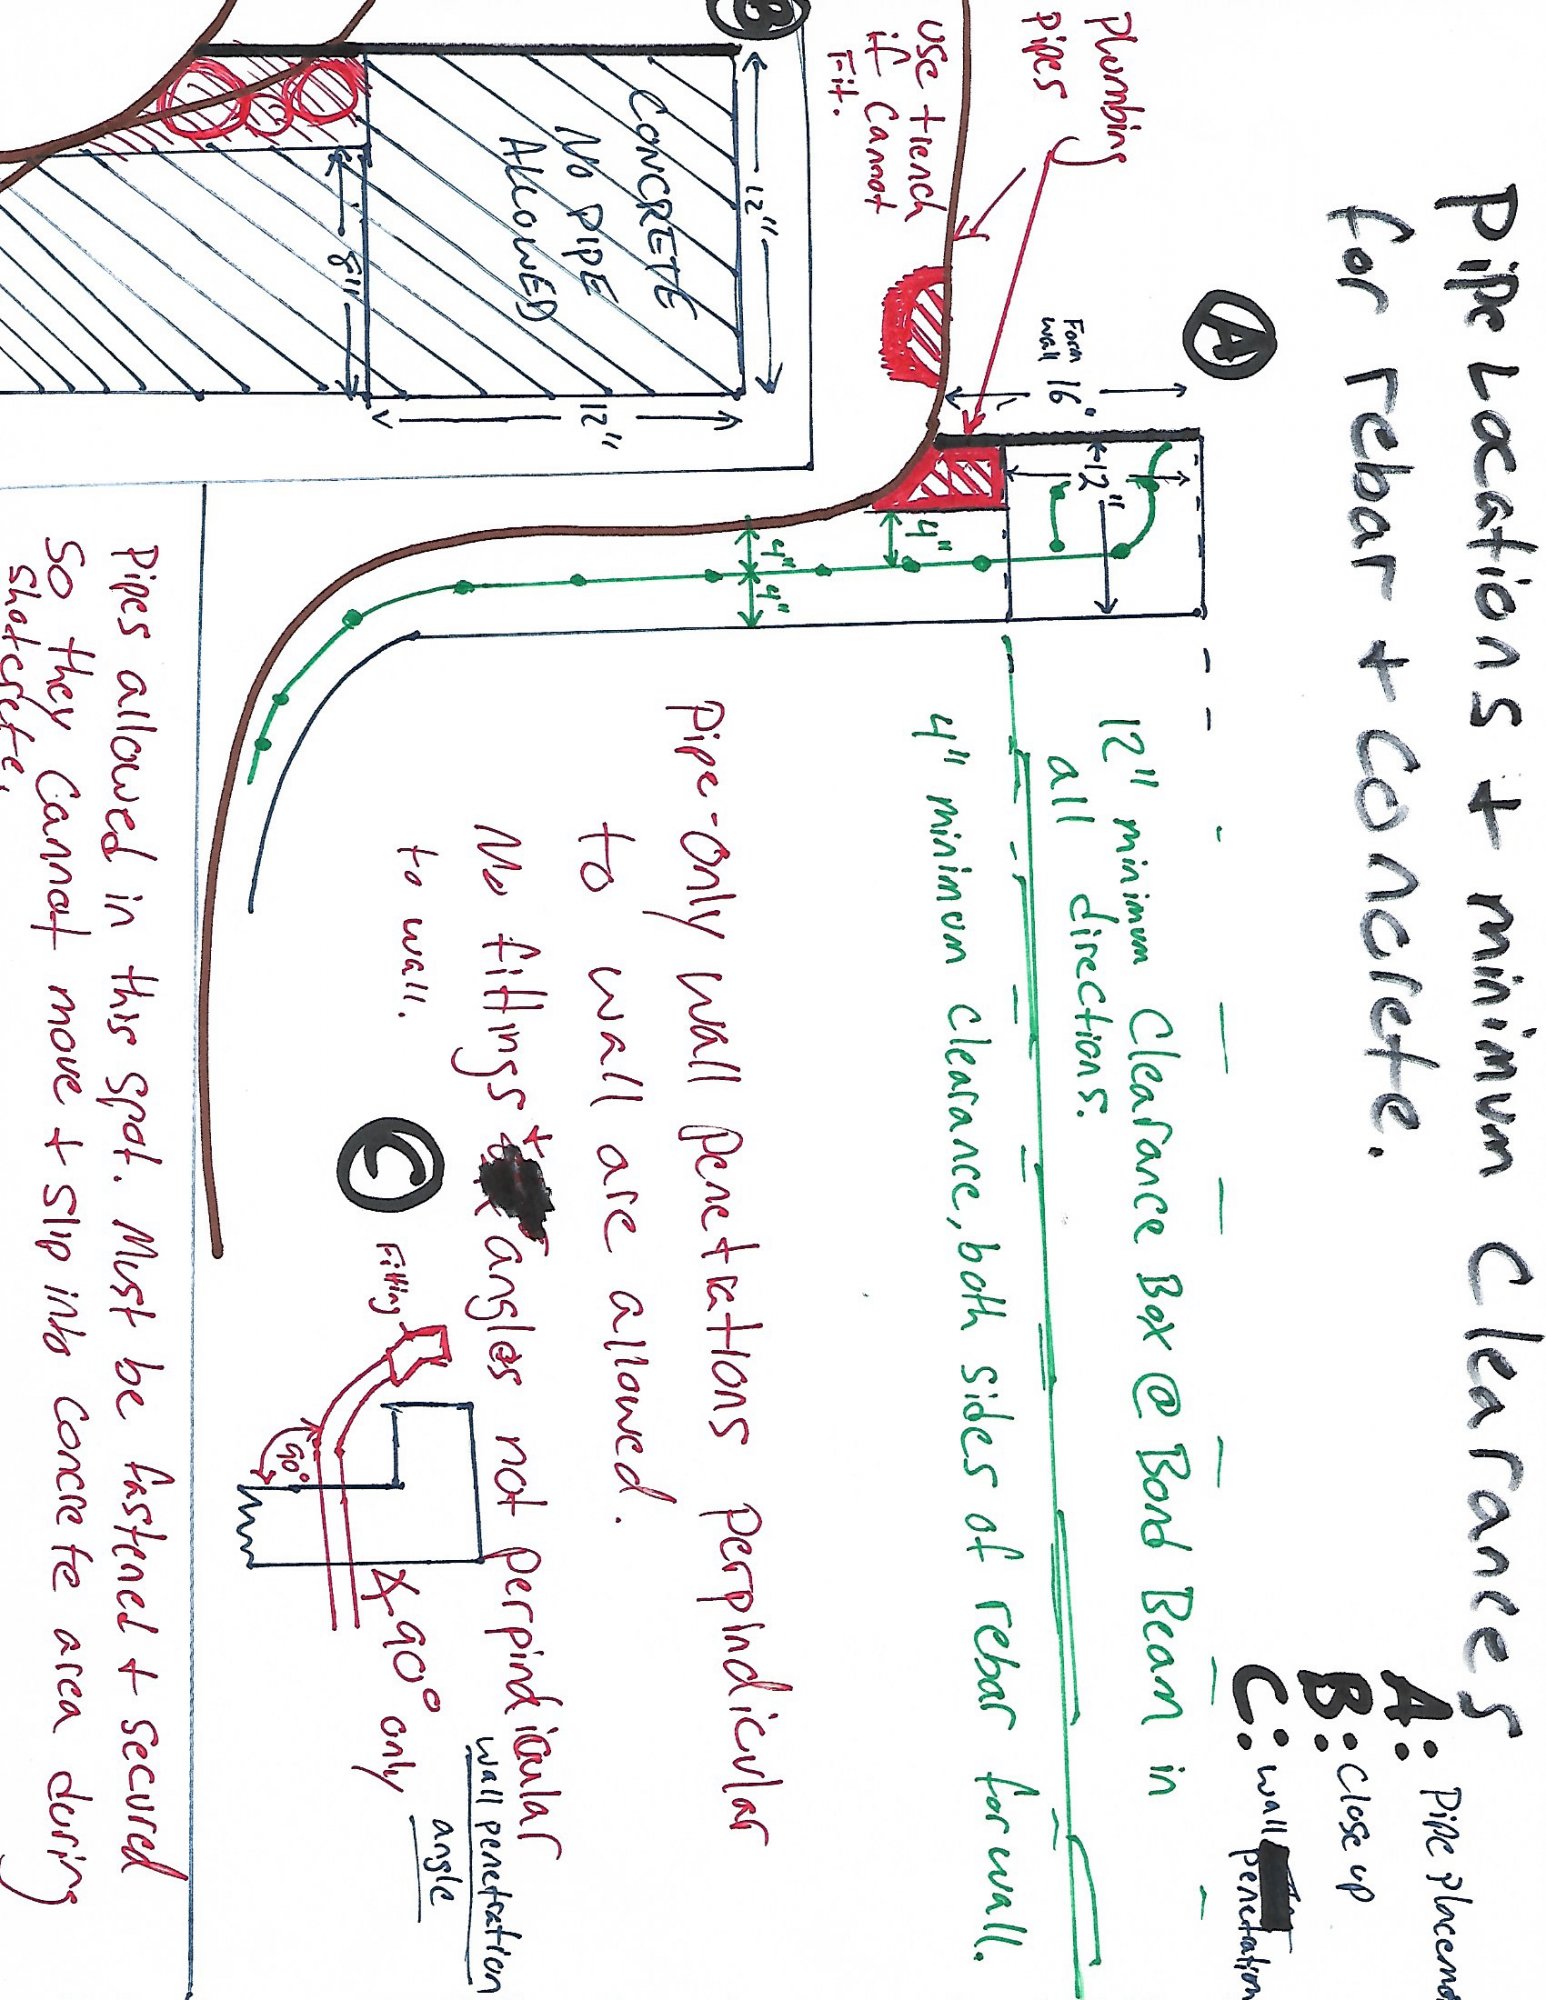 Pipe Locations + minimum Clearances
for rebar + concrete.
A: Pipe placement
B: Close up
C: wall penetration
A
Plumbing
pipes
use trench
if cannot
Fit.
Form
wall 16"
12"
4"
4" 4"
12" minimum Clearance Box @ Bond Beam in
all directions.
4" minimum clearance, both sides of rebar for wall.
Pipe-only wall penetrations perpindicular
to wall are allowed.
No fittings + angles not perpindicular
to wall.
B
12"
CONCRETE
NO PIPE
ALLOWED
12"
8"
C
Fitting
90°
90° only
wall penetration
angle
Pipes allowed in this spot. Must be fastened + secured
so they cannot move + slip into concrete area during
shotcrete.